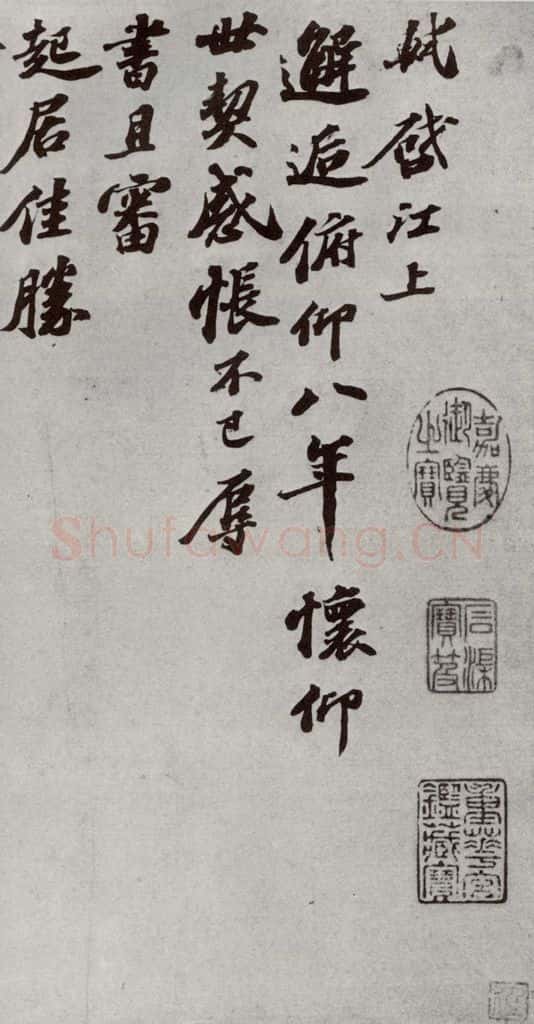 軾啓江上
邂逅俯仰八年懷仰
世契感悵不已辱
書且審
起居佳勝
嘉慶御覽之寶
石渠寶笈
重華宮鑑藏寶
Shufawang.CN